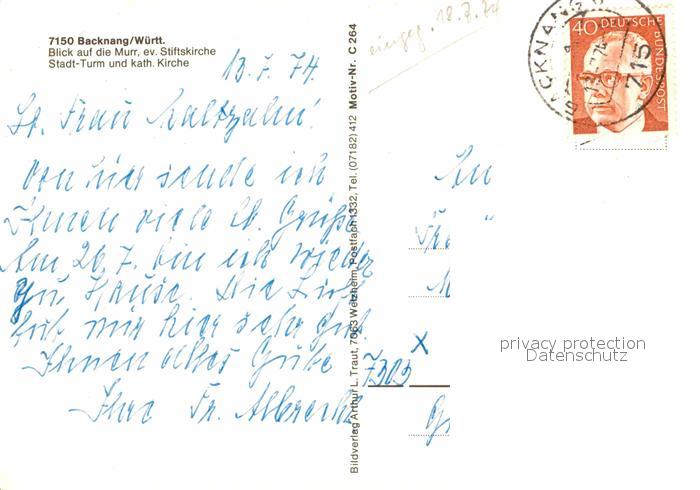 7150 Backnang/Württ.
Blick auf die Murr, ev. Stiftskirche
Stadt-Turm und kath. Kirche
13.7.74.
Lb. Frau
Von hier sende ich
Ihnen viele lb. Grüße
Am 20.7. bin ich wieder
zu Hause. Die Luft
tut mir hier sehr gut.
Ihnen alles Gute
Ihre Fr. Albrecht
Bildverlag Arthur L. Traut, 7063 Welzheim, Postfach 1332, Tel. (07182) 412 Motiv-Nr. C 264
eingeg. 18.7.74
40 DEUTSCHE BUNDESPOST
BACKNANG
715
An
M
x
7303
privacy protection
Datenschutz